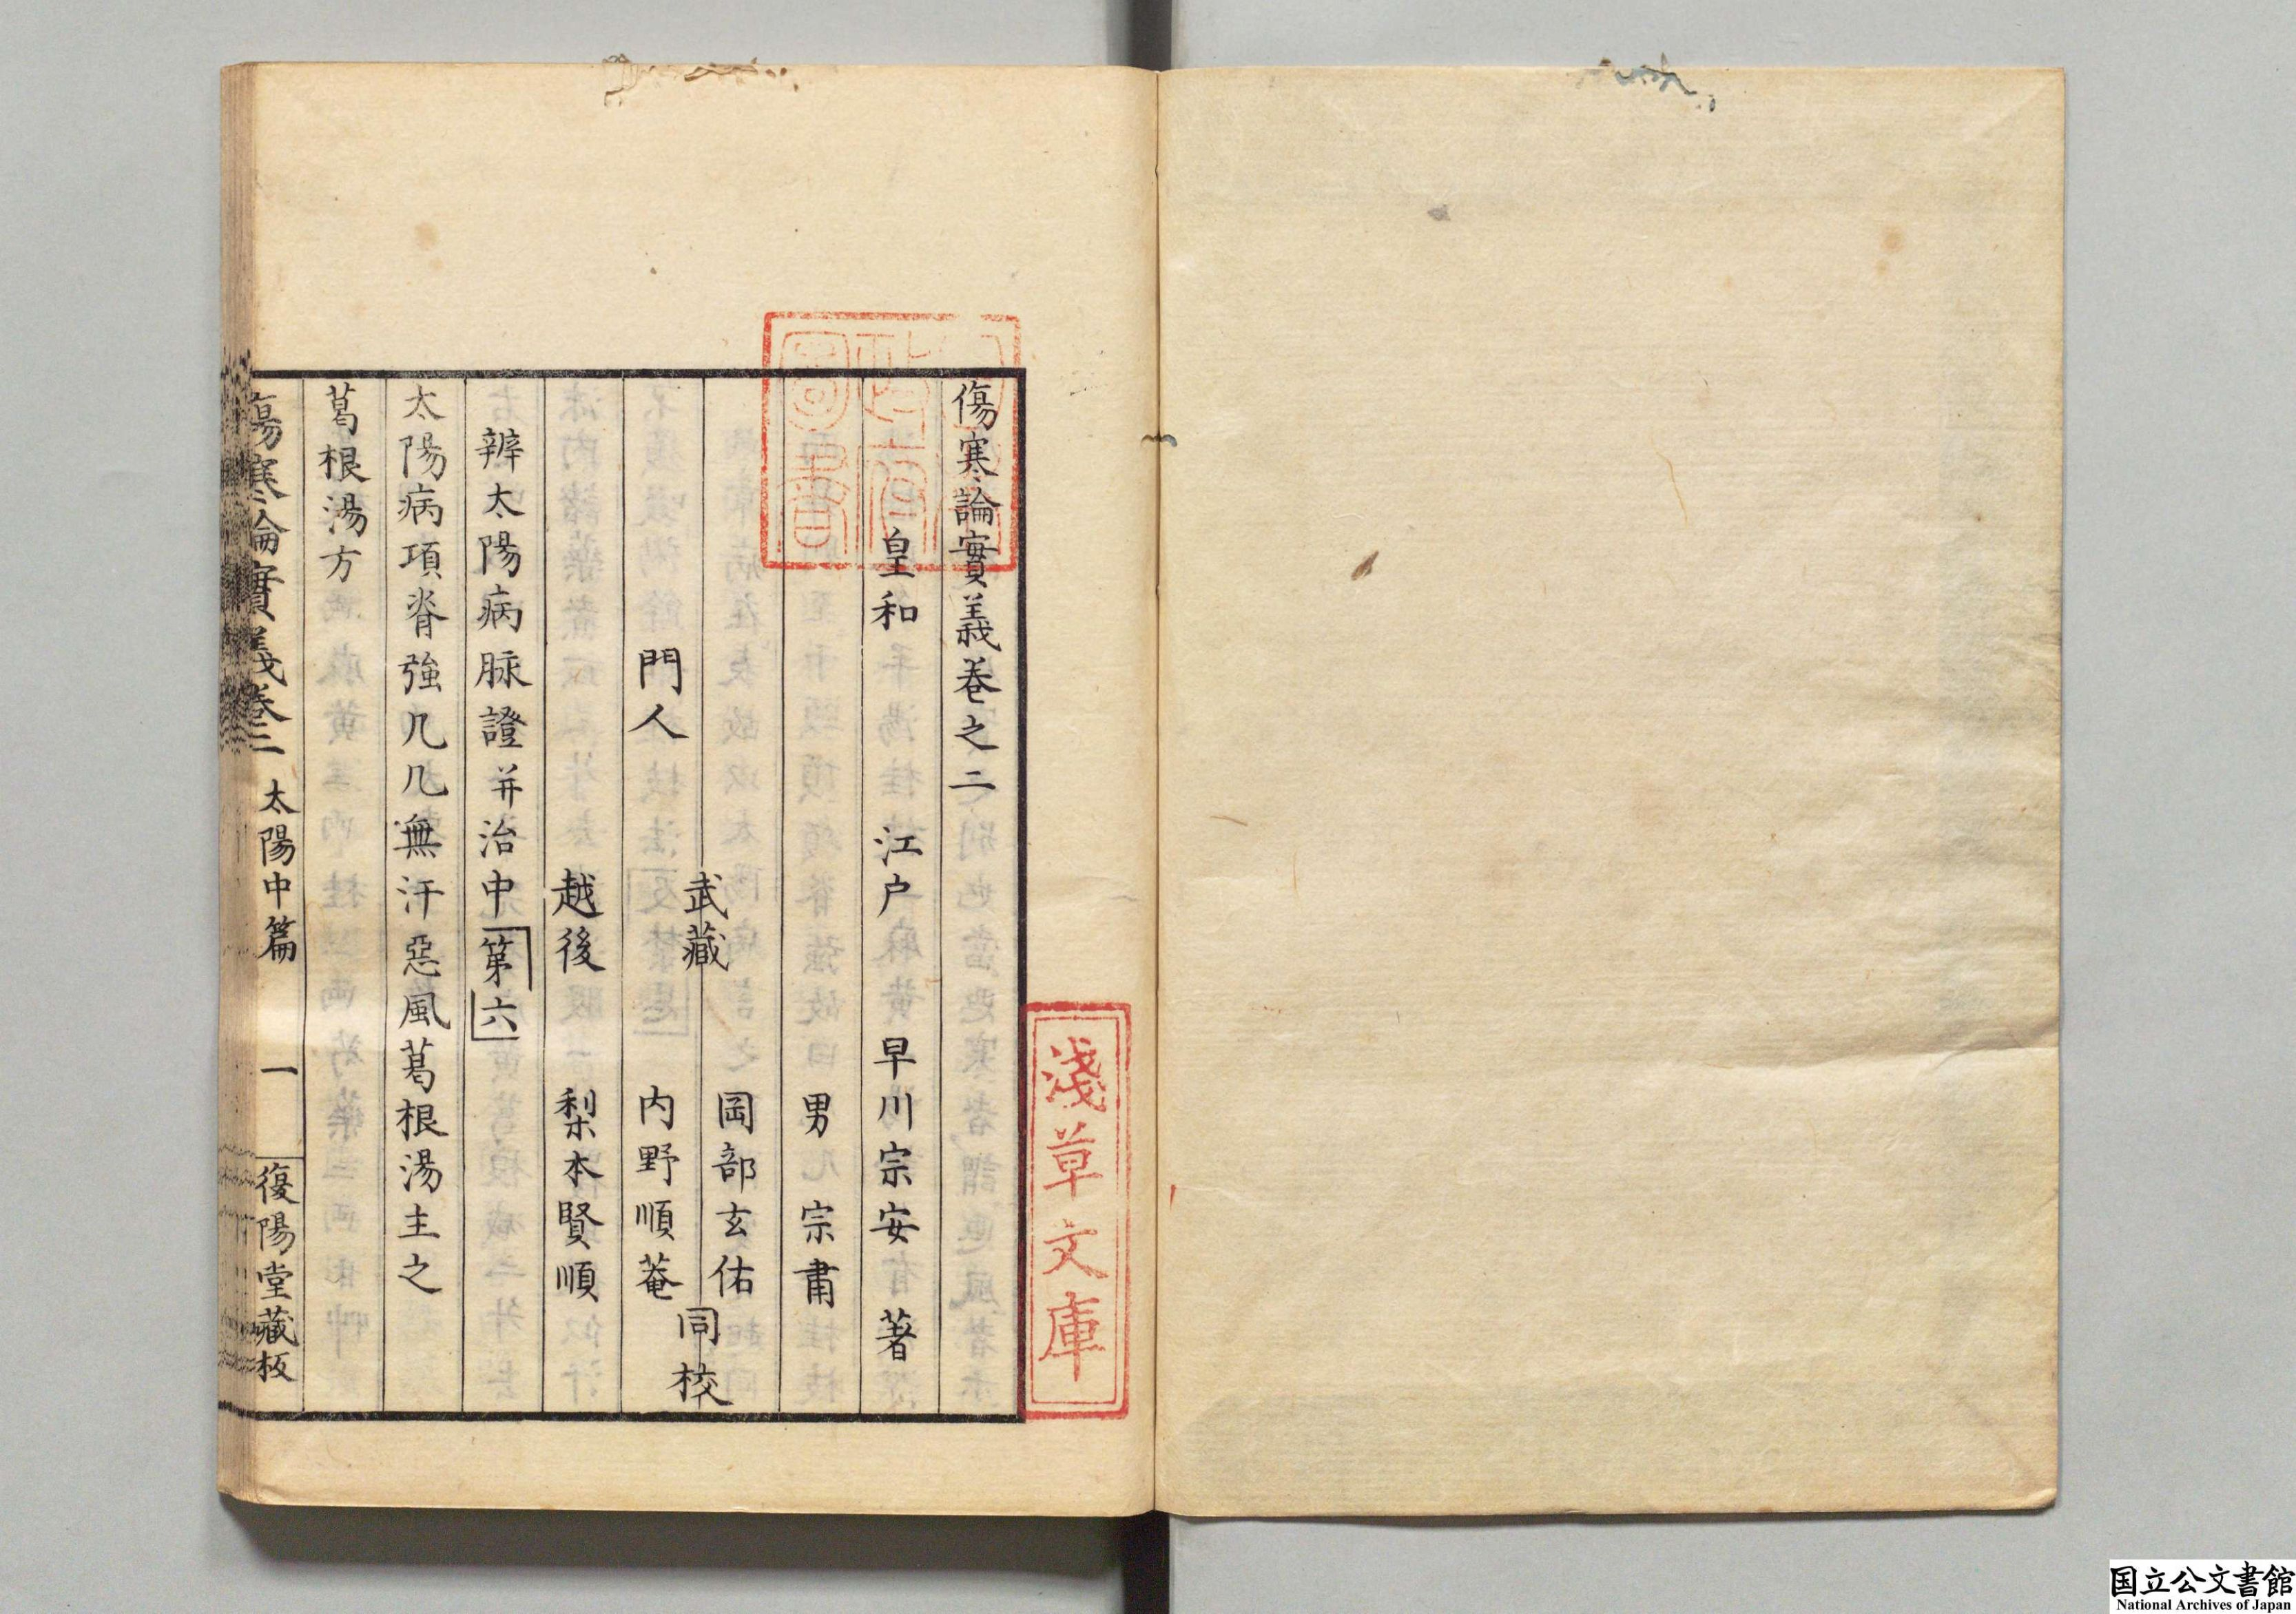 傷寒論實義卷之二
皇和 江戸 早川宗安 著
男 宗甫
武藏 岡部玄佑
門人 内野順菴 同校
越後 梨本賢順
辨太陽病脉證并治中 第六
太陽病項脊強几几無汗惡風葛根湯主之
葛根湯方
傷寒論實義卷二 太陽中篇 一 復陽堂藏板
淺草文庫
国立公文書館
National Archives of Japan